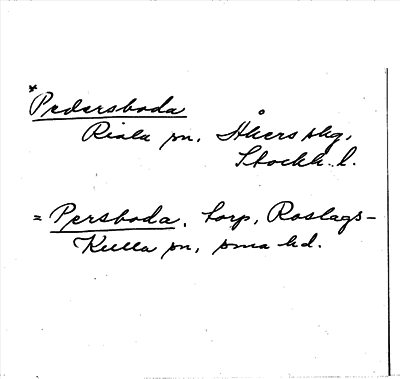 *Pedersboda
Riala sn, Åkers skg,
Stockh. l.
= Persboda, torp, Roslags-
Kulla sn, sma hd.